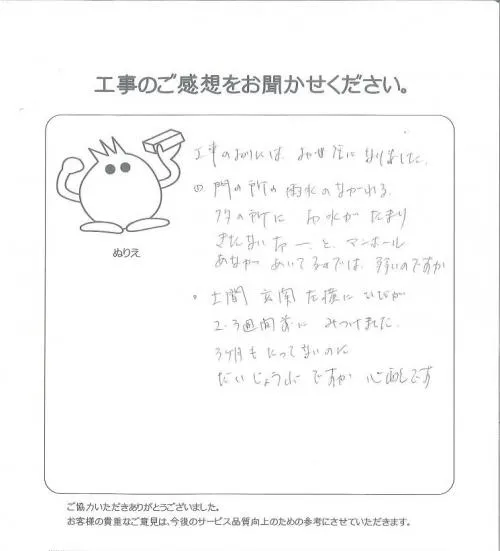 工事のご感想をお聞かせください。
工事の折りには、お世話になりました。
門の所の雨水のながれる
フタの所に 雨水が たまり
きたない と、マンホール
あなが あいてるのでは、ないのですか
・土間 玄関 左横に ひびが
2.3週間前に みつけました。
3ヶ月も たってないのに
だいじょうぶですか 心配です
ぬりえ
ご協力いただきありがとうございました。
お客様の貴重なご意見は、今後のサービス品質向上のための参考にさせていただきます。